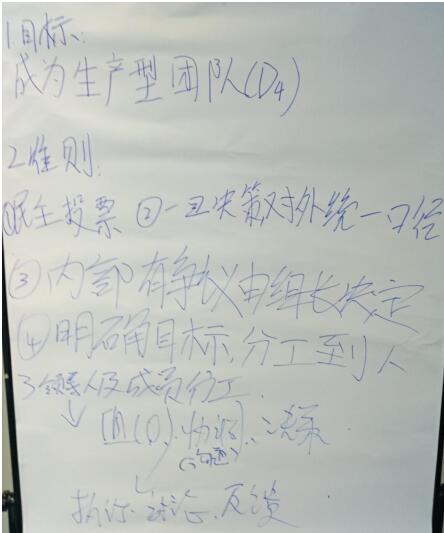 1目标:
成为生产型团队(D4)
2准则:
①民主投票 ②一旦决策对外统一口径
③内部有争议由组长决定
④明确目标,分工到人
3领导人及成员分工.
↓
执行. 讨论. 反馈